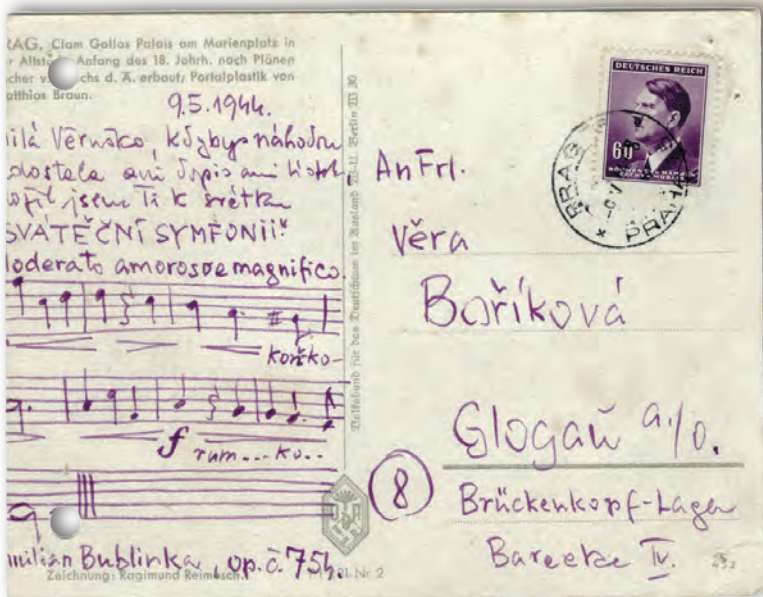 RAG, Clam Gallas Palais am Marienplatz in
r Altstadt Anfang des 18. Jahrh. nach Plänen
cher v. chs d. Ä. erbaut; Portalplastik von
atthias Braun.
9.5.1944.
ilá Věruško, kdybys náhodou
dostala ani dopis ani lístek,
ožil jsem Ti k svátku
SVÁTEČNÍ SYMFONII"
oderato amoroso e magnifico.
koňko-
f rum...ko..
milián Bublinka, op. č. 754.
Zeichnung: Ragimund Reimesch.
Nr 2
Volksbund für das Deutschtum im Ausland
Berlin W 30
DEUTSCHES REICH
60
BÖHMEN UND MÄHREN
PRAG
PRAHA
An Frl.
Věra
Boříková
Glogau a/O.
8
Brückenkopf-Lager
Baracke IV.